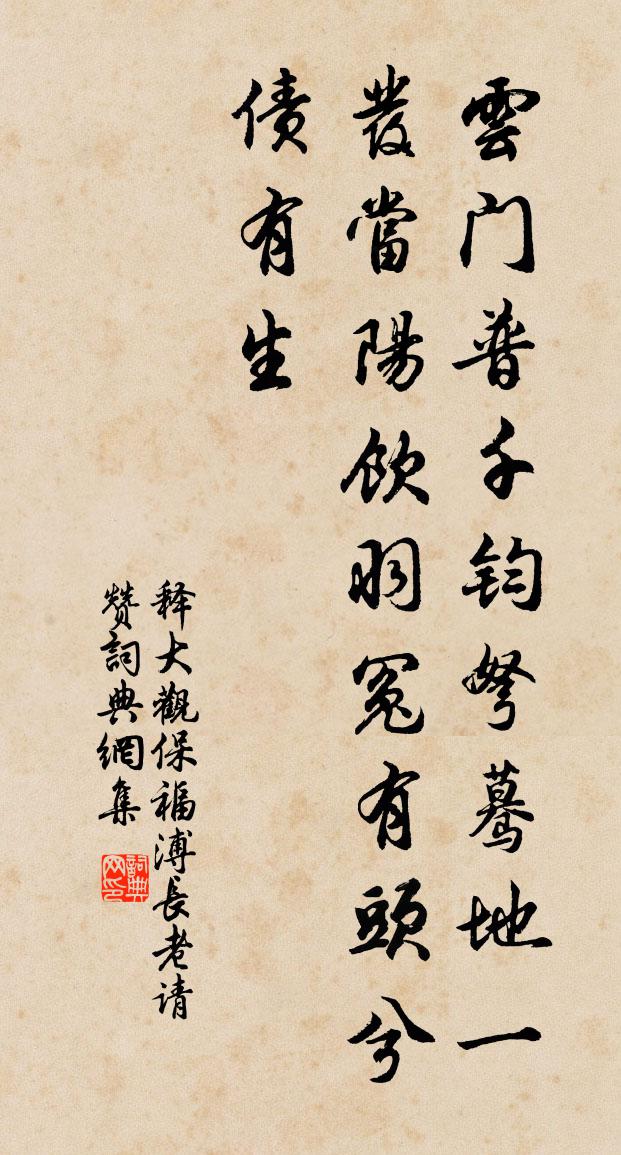 雲门普千钧弩蓦地一
發當陽飲羽冤有頭兮
债有生
释大觀保福溥長老请
赞詞典網集
詞典
网印